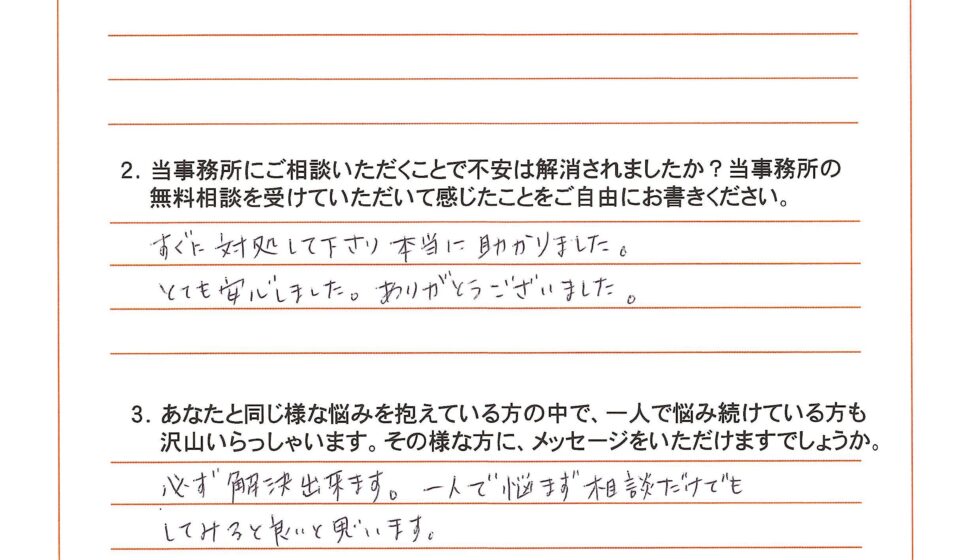 2. 当事務所にご相談いただくことで不安は解消されましたか？当事務所の
無料相談を受けていただいて感じたことをご自由にお書きください。
すぐに対処して下さり本当に助かりました。
とても安心しました。ありがとうございました。
3. あなたと同じ様な悩みを抱えている方の中で、一人で悩み続けている方も
沢山いらっしゃいます。その様な方に、メッセージをいただけますでしょうか。
必ず解決出来ます。一人で悩まず相談だけでも
してみると良いと思います。